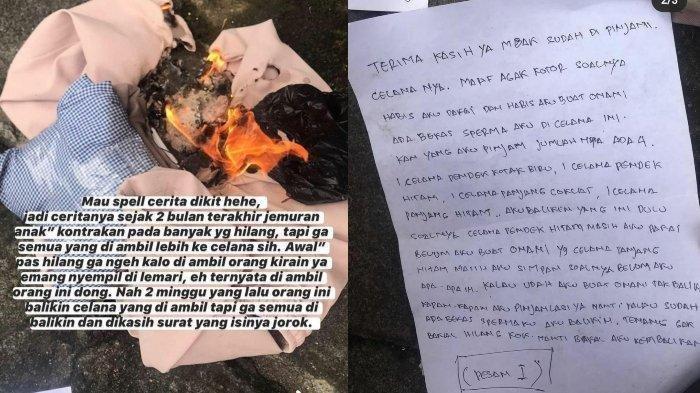 Mau spell cerita dikit hehe,
jadi ceritanya sejak 2 bulan terakhir jemuran
anak" kontrakan pada banyak yg hilang, tapi ga
semua yang di ambil lebih ke celana sih. Awal"
pas hilang ga ngeh kalo di ambil orang kirain ya
emang nyempil di lemari, eh ternyata di ambil
orang ini dong. Nah 2 minggu yang lalu orang ini
balikin celana yang di ambil tapi ga semua di
balikin dan dikasih surat yang isinya jorok.
2/3
TERIMA KASIH YA MBAK SUDAH DI PINJAMI.
CELANA NYA. MAAF AGAK KOTOR SOALNYA
HABIS AKU PAKAI DAN HABIS AKU BUAT ONANI
ADA BEKAS SPERMA AKU DI CELANA INI.
KAN YANG AKU PINJAM JUMLAH NYA ADA 4.
1 CELANA PENDEK KOTAK BIRU, 1 CELANA PENDEK
HITAM, 1 CELANA PANJANG COKLAT, 1 CELANA
PANJANG HITAM. AKU BALIKIN YANG INI DULU
SOALNYA CELANA PENDEK HITAM MASIH AKU PAKAI
BELUM AKU BUAT ONANI YG CELANA PANJANG
HITAM MASIH AKU SIMPAN SOALNYA BELUM AKU
APA-APAIN. KALAU UDAH AKU BUAT ONANI TAK BALIKIN
KAPAN-KAPAN AKU PINJAM LAGI YA NANTI KALAU SUDAH
ADA BEKAS SPERMAKU AKU BALIKIN. TENANG GAK
BAKAL HILANG KOK NANTI BAKAL AKU KEMBALIKAN
(PESAN I)